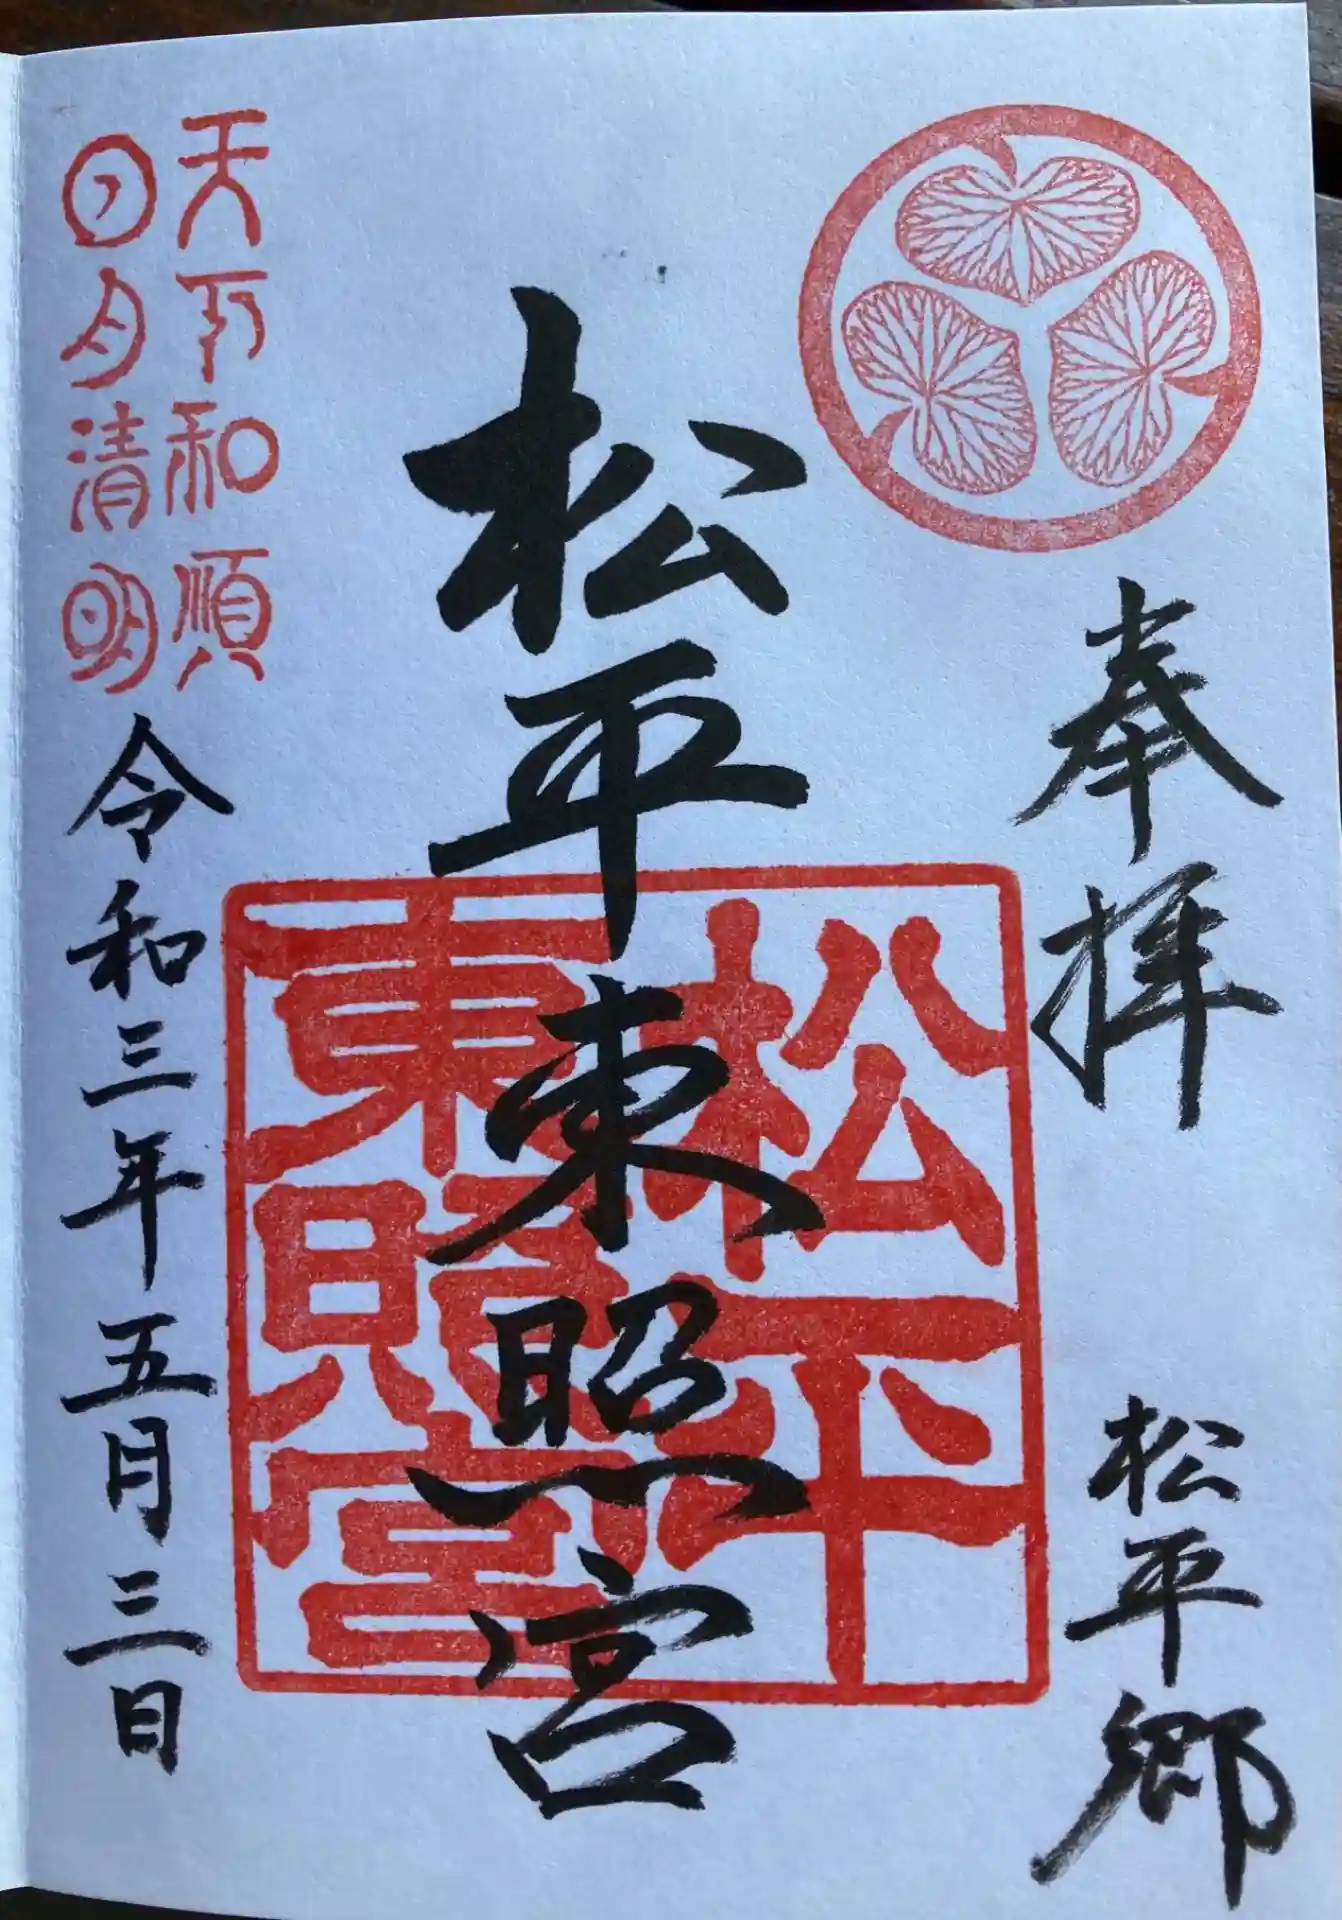 奉拝
松平郷
松平東照宮
松平
東照宮
天下和順
日月清明
令和三年五月三日